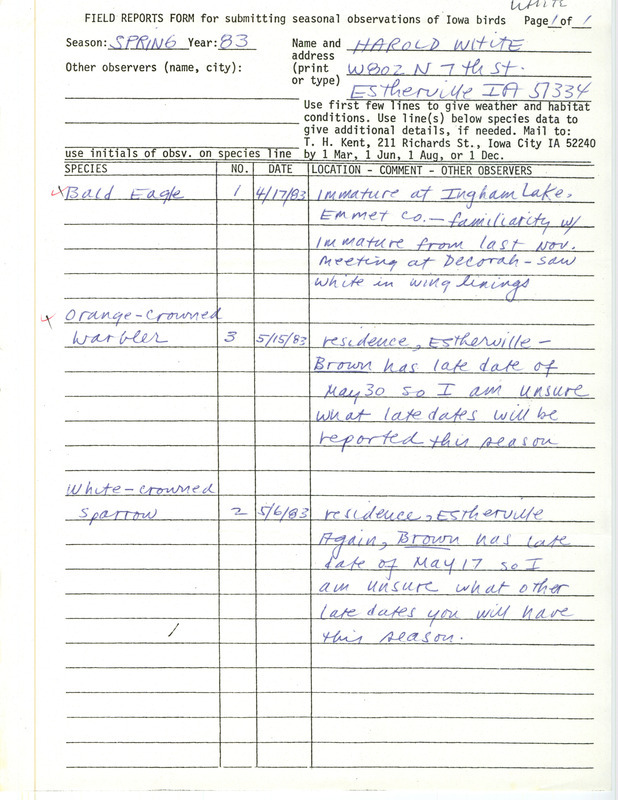 WHITE
FIELD REPORTS FORM for submitting seasonal observations of Iowa birds Page 1 of 1
Season: SPRING Year: 83
Name and address (print or type) HAROLD WHITE
W802 N 7th St.
Estherville IA 51334
Other observers (name, city):
Use first few lines to give weather and habitat
conditions. Use line(s) below species data to
give additional details, if needed. Mail to:
T. H. Kent, 211 Richards St., Iowa City IA 52240
by 1 Mar, 1 Jun, 1 Aug, or 1 Dec.
use initials of obsv. on species line
SPECIES NO. DATE LOCATION - COMMENT - OTHER OBSERVERS
Bald Eagle 1 4/17/83 Immature at Ingham Lake,
Emmet Co. - familiarity w/
Immature from last Nov.
meeting at Decorah - saw
white in wing linings
Orange-crowned
Warbler 3 5/15/83 residence, Estherville -
Brown has late date of
May 30 so I am unsure
what late dates will be
reported this season
White-crowned
Sparrow 2 5/6/83 residence, Estherville
Again, Brown has late
date of May 17 so I
am unsure what other
late dates you will have
this season.